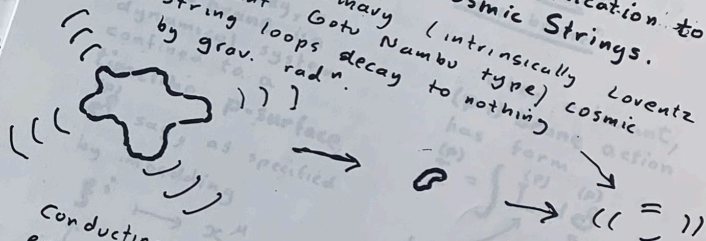 ication to
smic Strings.
nary (intrinsically Lorentz
Goto Nambu type) cosmic
string loops decay to nothing
by grav. rad n.
Conductin